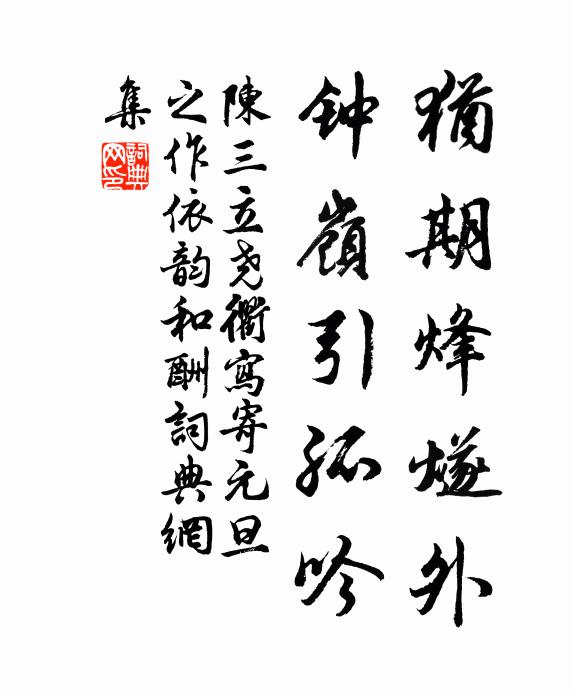 猶期烽燧外
钟嶺引孤吟
陳三立尧衢寫寄元旦
之作依韵和酬詞典網
集
詞典
网印